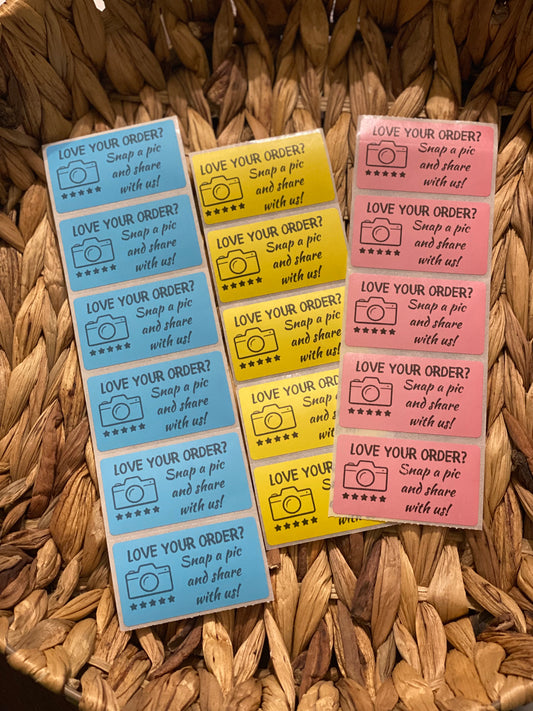 LOVE YOUR ORDER?
Snap a pic
and share
with us!
LOVE YOUR ORDER?
Snap a pic
and share
with us!
LOVE YOUR ORDER?
Snap a pic
and share
with us!
LOVE YOUR ORDER?
Snap a pic
and share
with us!
LOVE YOUR ORDER?
Snap a pic
and share
with us!
LOVE YOUR ORDER?
Snap a pic
and share
with us!
LOVE YOUR ORDER?
Snap a pic
and share
with us!
LOVE YOUR ORDER?
Snap a pic
and share
with us!
LOVE YOUR ORDER?
Snap a pic
and share
with us!
LOVE YOUR
Snap a
and
with
LOVE YOUR
Snap
and
with
LOVE YOUR ORDER?
Snap a pic
and share
with us!
LOVE YOUR ORDER?
Snap a pic
and share
with us!
LOVE YOUR ORDER?
Snap a pic
and share
with us!
LOVE YOUR ORDER?
Snap a pic
and share
with us!
LOVE YOUR ORDER?
Snap a pic
and share
with us!